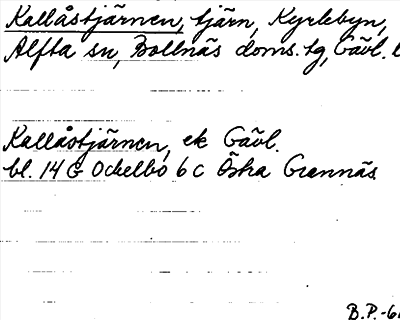 Kallåstjärnen, tjärn, Kyrkbyn,
Alfta sn, Bollnäs doms. tg, Gävl. l
Kallåstjärnen, ek Gävl.
bl. 14 G Ockelbo 6 c Östra Grannäs
B.P.-6